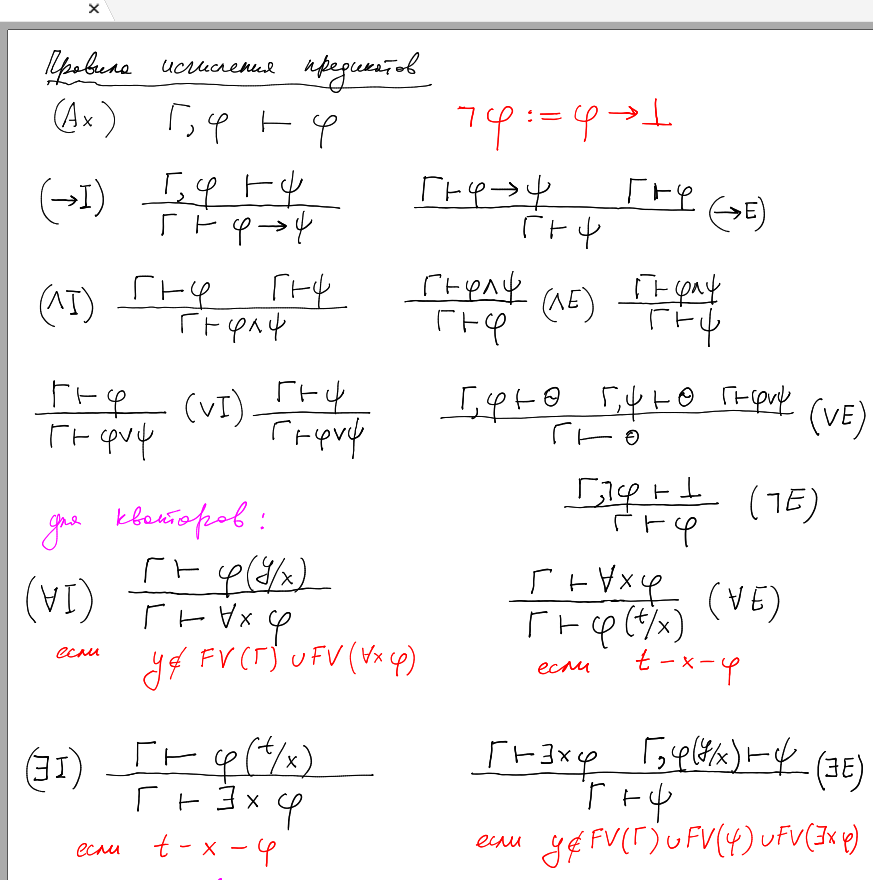 Правила исчисления предикатов
(Ax) Γ, φ ⊢ φ ¬φ := φ → ⊥
(→I) Γ, φ ⊢ ψ Γ ⊢ φ → ψ Γ ⊢ φ
Γ ⊢ φ → ψ Γ ⊢ ψ (→E)
(∧I) Γ ⊢ φ Γ ⊢ ψ Γ ⊢ φ∧ψ (∧E) Γ ⊢ φ∧ψ
Γ ⊢ φ∧ψ Γ ⊢ φ Γ ⊢ ψ
Γ ⊢ φ (∨I) Γ ⊢ ψ Γ, φ ⊢ Θ Γ, ψ ⊢ Θ Γ ⊢ φ∨ψ (∨E)
Γ ⊢ φ∨ψ Γ ⊢ φ∨ψ Γ ⊢ Θ
Γ, ¬φ ⊢ ⊥ (¬E)
Γ ⊢ φ
для кванторов:
(∀I) Γ ⊢ φ(y/x) Γ ⊢ ∀xφ (∀E)
Γ ⊢ ∀x φ Γ ⊢ φ(t/x)
если y ∉ FV(Γ) ∪ FV(∀xφ) если t - x - φ
(∃I) Γ ⊢ φ(t/x) Γ ⊢ ∃xφ Γ, φ(y/x) ⊢ ψ (∃E)
Γ ⊢ ∃x φ Γ ⊢ ψ
если t - x - φ если y ∉ FV(Γ) ∪ FV(ψ) ∪ FV(∃xφ)